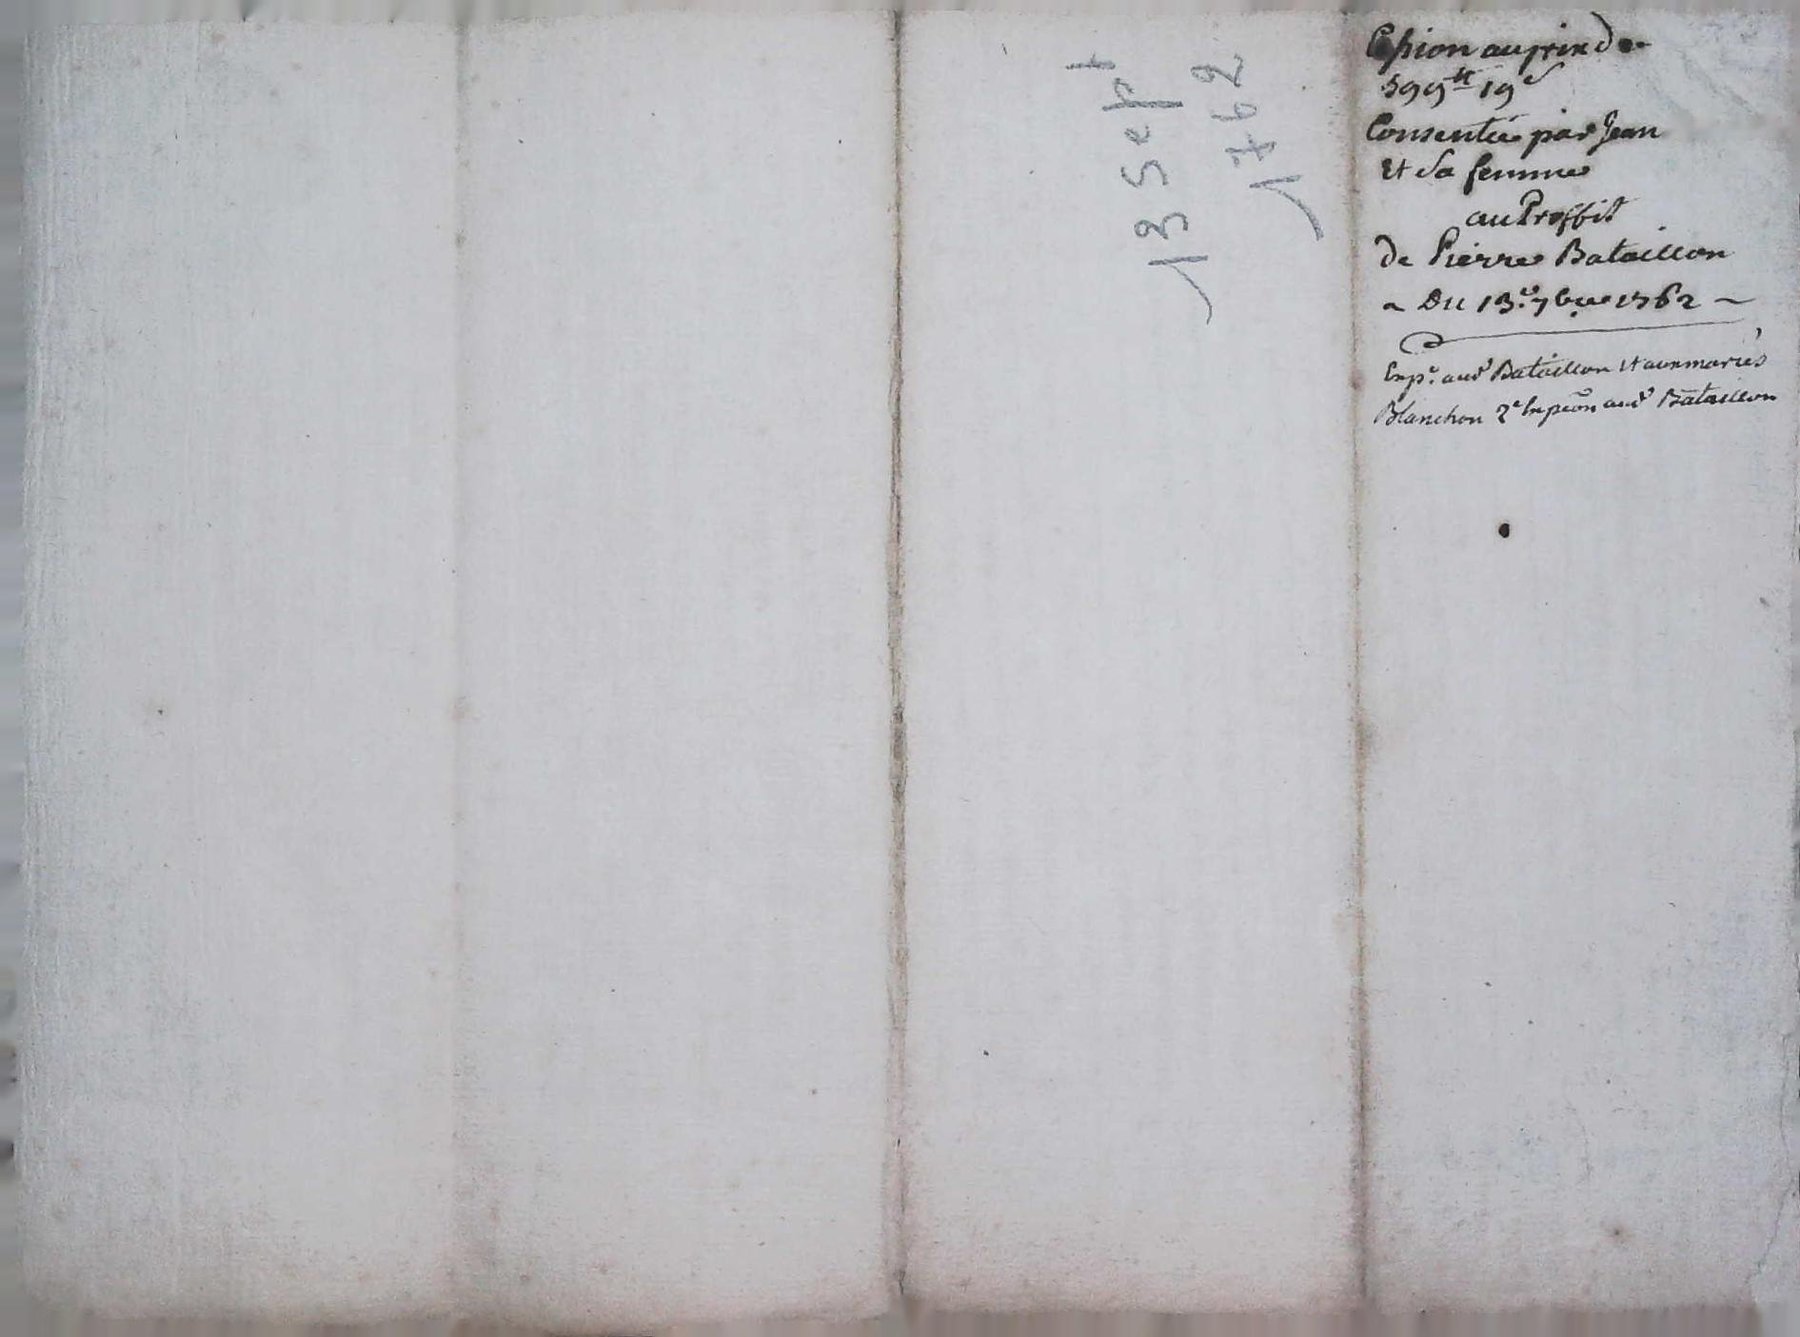 13 Sept
1762
Cession au prix de
599lt 19s
Consentie par Jean
Et Sa femme
au Proffit
de Pierre Bataillon
~ Du 13e 7bre 1762 ~
Exp. aud Bataillon et aux mariés
Blanchon 2e Expéon aud Bataillon